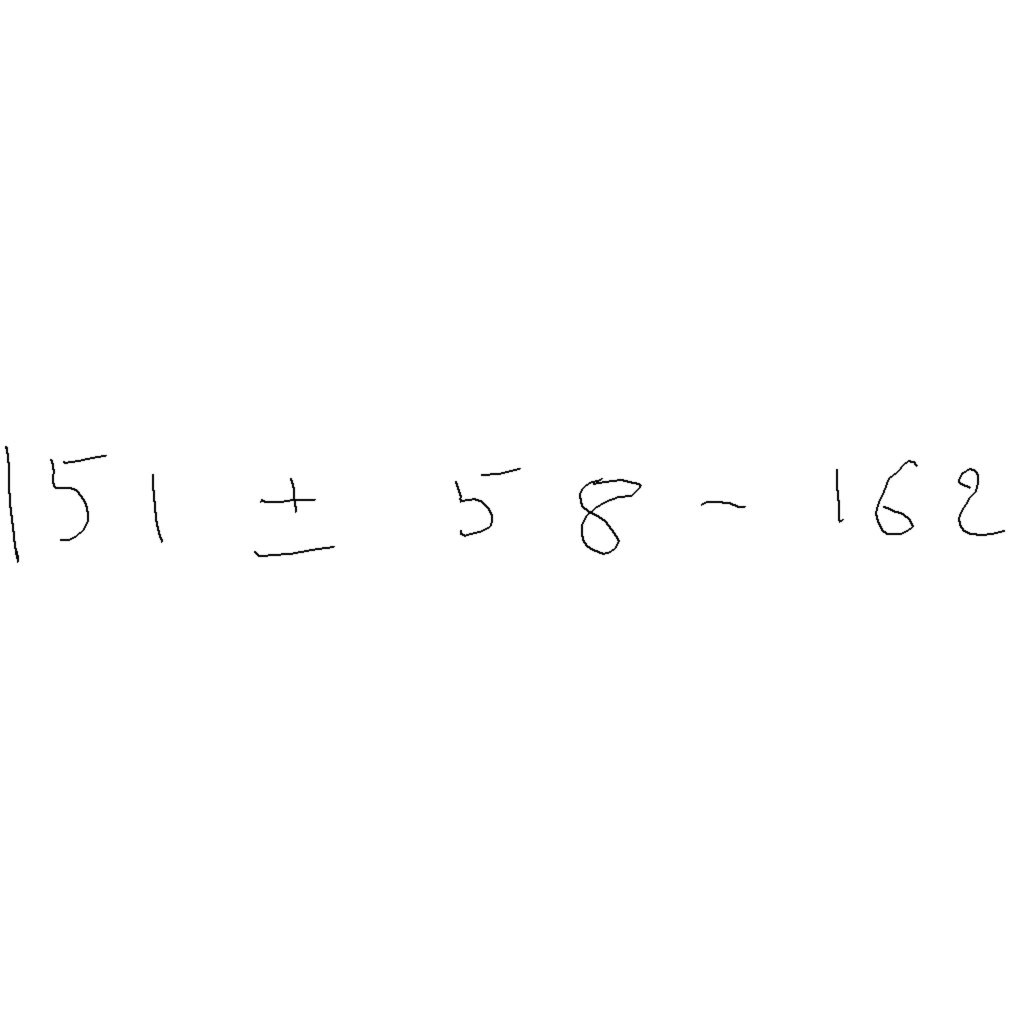 151 ± 58 - 162